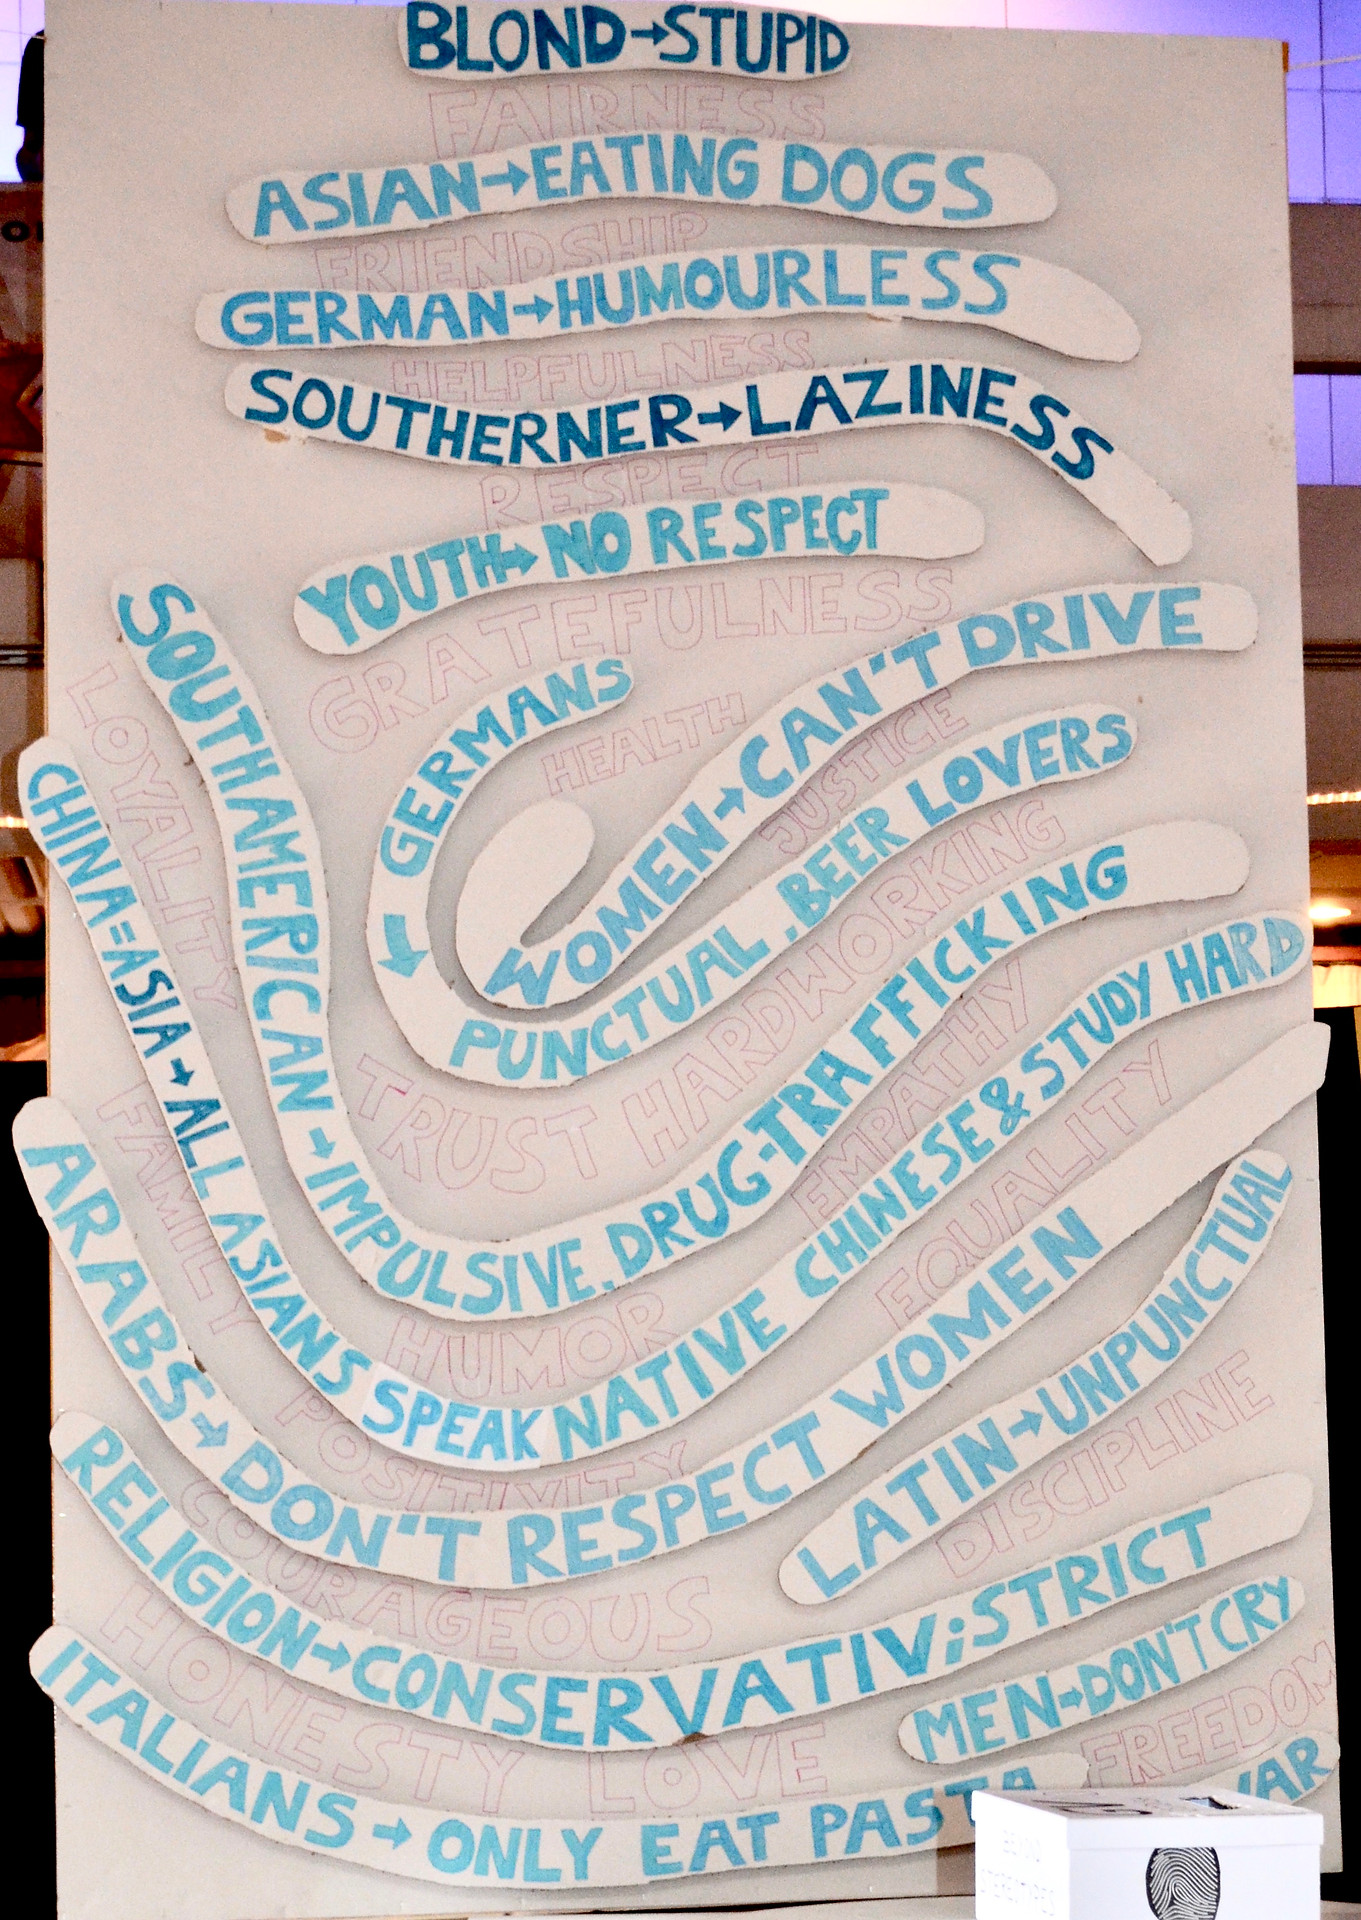 BLOND→STUPID
FAIRNESS
ASIAN→EATING DOGS
FRIENDSHIP
GERMAN→HUMOURLESS
HELPFULNESS
SOUTHERNER→LAZINESS
RESPECT
YOUTH→NO RESPECT
GRATEFULNESS
GERMANS → PUNCTUAL, BEER LOVERS
HEALTH
WOMEN→CAN'T DRIVE
JUSTICE
LOYALITY
SOUTHAMERICAN→IMPULSIVE, DRUG-TRAFFICKING
TRUST HARDWORKING
EMPATHY
CHINA=ASIA→ALL ASIANS SPEAK NATIVE CHINESE & STUDY HARD
FAMILY
HUMOR
EQUALITY
ARABS→DON'T RESPECT WOMEN
POSITIVITY
LATIN→UNPUNCTUAL
DISCIPLINE
COURAGEOUS
RELIGION→CONSERVATIV;STRICT
MEN→DON'T CRY
HONESTY LOVE
FREEDOM
ITALIANS→ONLY EAT PASTA
BEYOND
STEREOTYPES